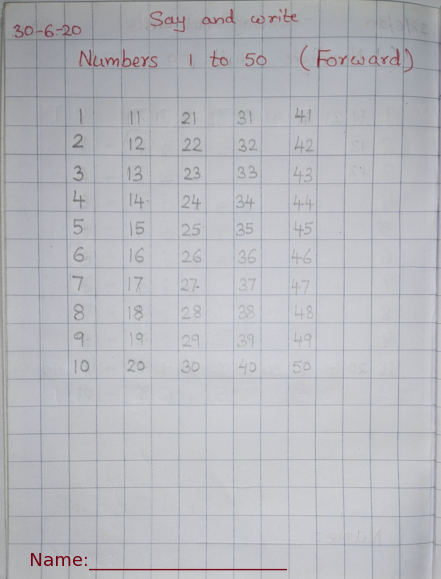 30-6-20
Say and write
Numbers 1 to 50 (Forward)
1 11 21 31 41
2 12 22 32 42
3 13 23 33 43
4 14 24 34 44
5 15 25 35 45
6 16 26 36 46
7 17 27 37 47
8 18 28 38 48
9 19 29 39 49
10 20 30 40 50
Name:____________________